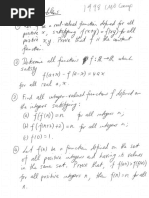 1998 IMO Camp
① Let f be a real-valued function defined for all
positive x, satisfying f(x+y) = f(xy) for all
positive x,y. Prove that f is a constant
function.
② Determine all functions f: R→R which
satisfy
f(a+x) - f(a-x) = 4ax
③ Find all integer-valued functions f defined on
the integers satisfying:
(a) f(f(n)) = n for all n.
(b) f(f(n+2)+2) = n for all n.
(c) f(0) = 1.
④ Let f(n) be a function defined on the set
of all positive integers and having its values in
the same set. Prove that if f(n+1) > f(f(n))
for all positive integers n, then f(n) = n for
all n.